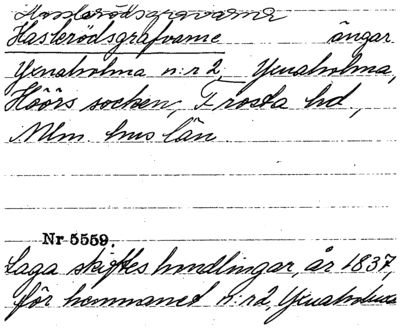 Hasterödsgravarna
Hasterödsgrafvarne ängar
Ynnaholma n:r 2, Ynnaholma,
Höörs socken, Frosta hd.,
Mlm hus län
Nr 5559.
Laga skiftes handlingar, år 1837,
för hemmanet n:r 2, Ynnaholma